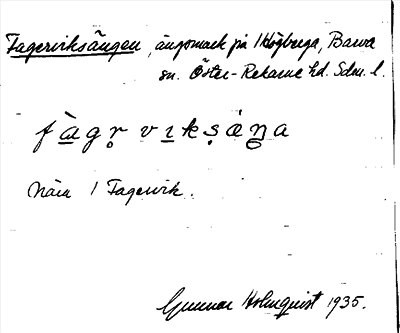 Fagerviksängen, ängsmark på 1 Högberga, Barva
sn. Öster-Rekarne hd. Sdm. l.
fàgr̥ vikṣäŋa
Nära 1 Fagervik.
Gunnar Holmquist 1935.